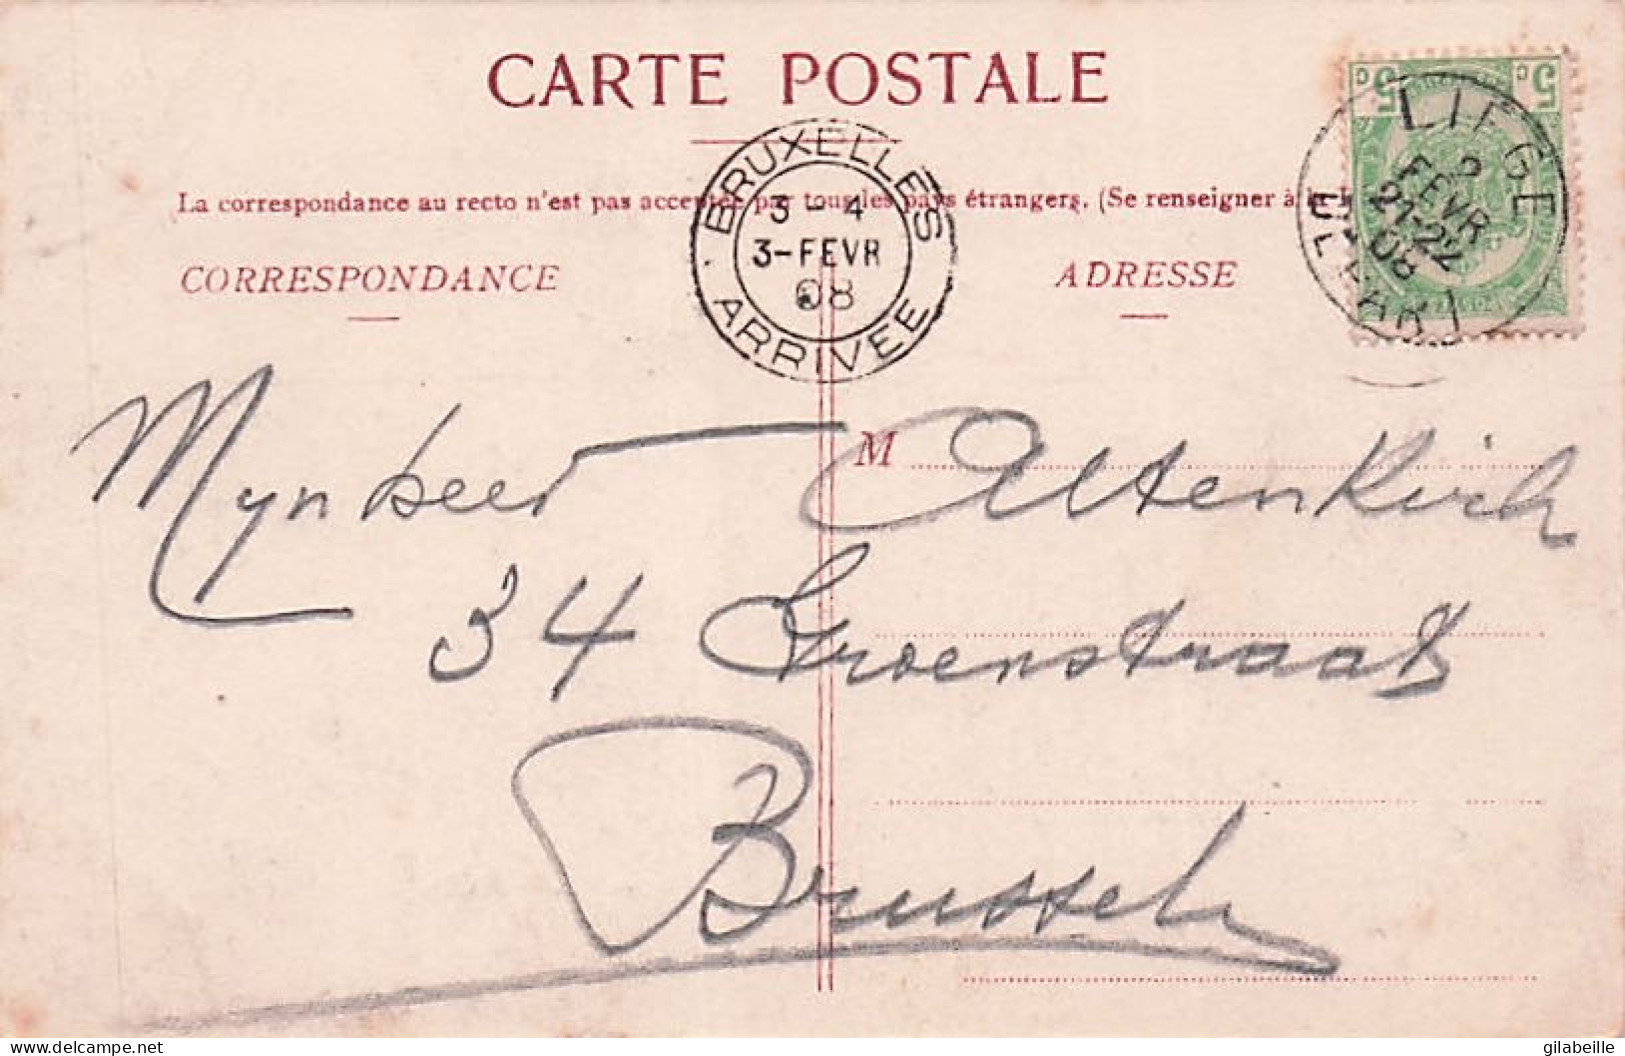 CARTE POSTALE
BRUXELLES
3 - 4
3-FEVR
08
ARRIVEE
5 c
5 c
LIEGE
2
FEVR
21-22
08
DEPART
La correspondance au recto n'est pas acceptée par tous les pays étrangers. (Se renseigner à la
CORRESPONDANCE
ADRESSE
M
Mynheer Altenkirch
34 Groenstraat
Brussel
delcampe.net
gilabeille